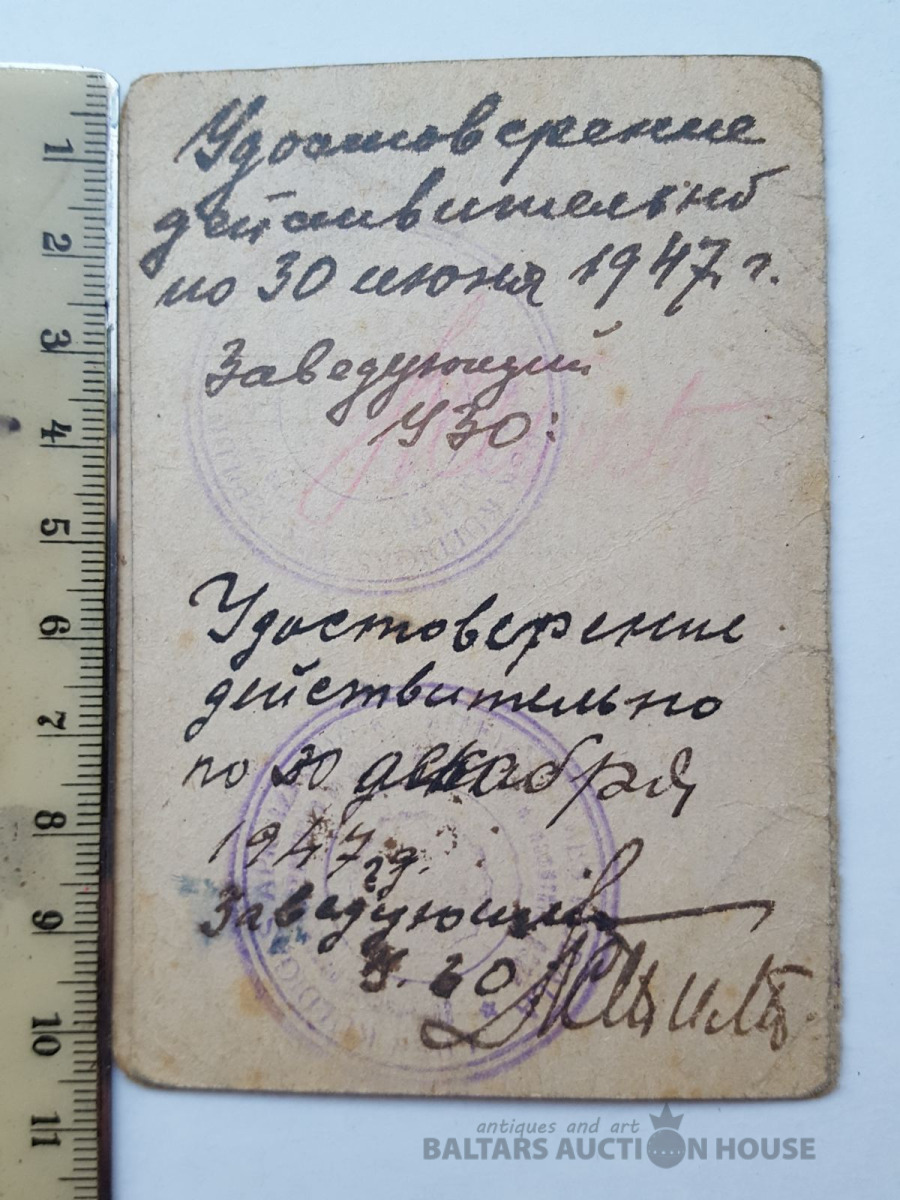 Удостоверение
действительно
по 30 июня 1947 г.
Заведующий
УЗО:
Удостоверение
действительно
по 30 декабря
1947 гд.
Заведующий
У.ЗО
KULDIGAS
KULDIGAS
1
2
3
4
5
6
7
8
9
10
11
antiques and art
BALTARS AUCTION HOUSE